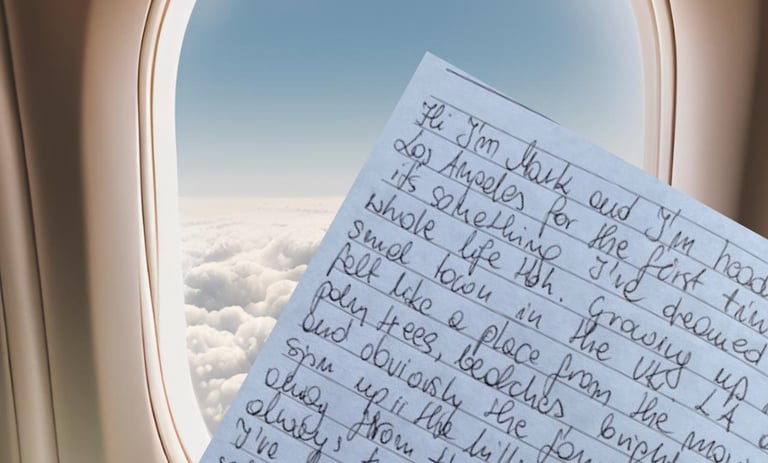 Hi I'm Mark and I'm head
Los Angeles for the first tim
it's something I've dreamed
whole life tbh. Growing up
small town in the UK LA
felt like a place from the mov
palm trees, beaches bright
and obviously the fam
sign up in the hill
away from th
always t
I've